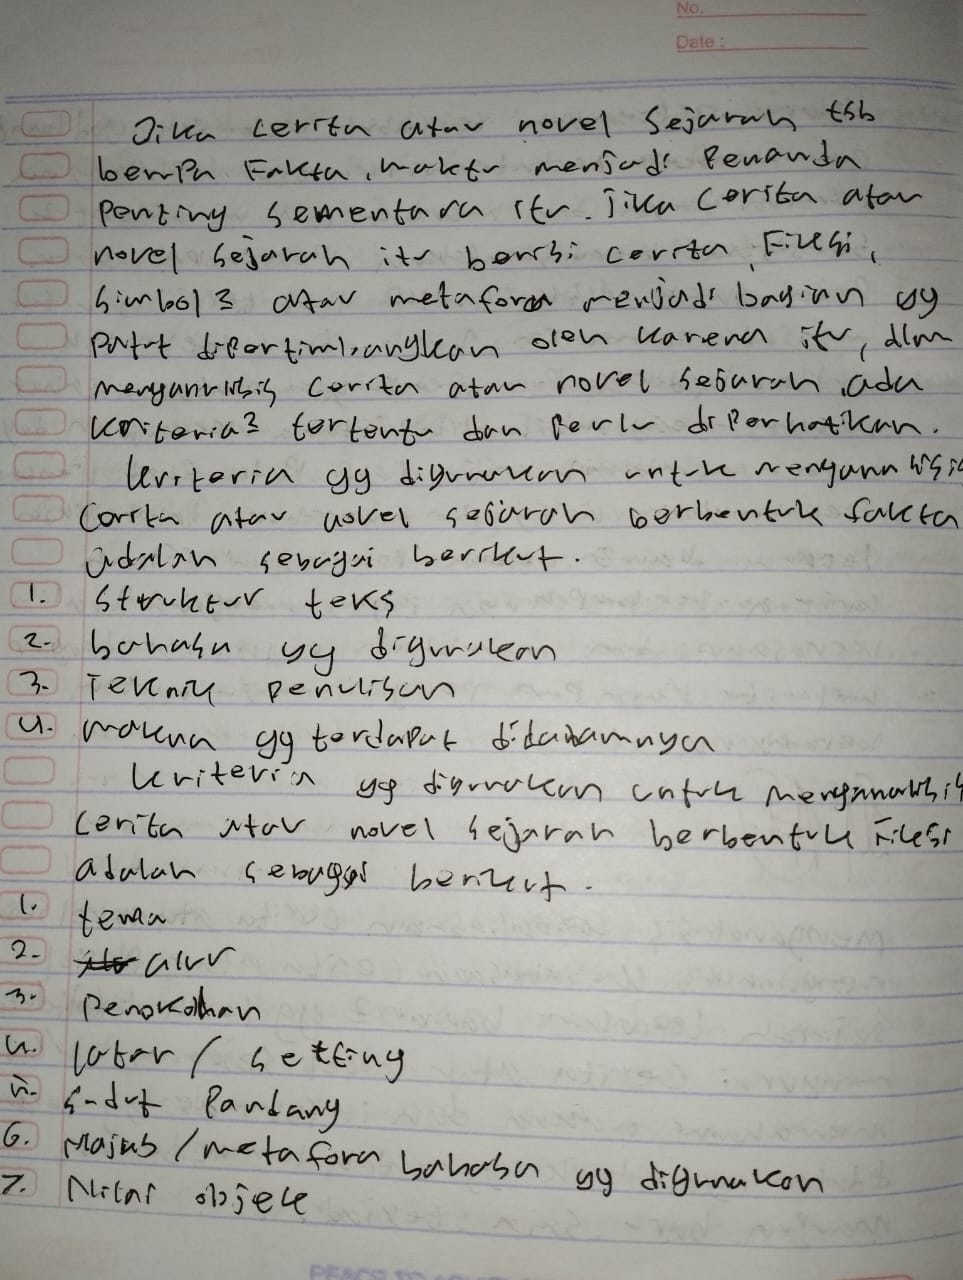 No.
Date :
Jika cerita atau novel Sejarah tsb
berupa Fakta, waktu menjadi Penanda
Penting sementara itu. Jika Cerita atau
novel sejarah itu berisi cerita Fiksi,
simbol2 atau metafora menjadi bagian yg
Patut dipertimbangkan oleh karena itu, dlm
menganalisis cerita atau novel sejarah ada
kriteria2 tertentu dan Perlu diperhatikan.
kriteria yg digunakan untuk menganalisis
Cerita atau novel sejarah berbentuk fakta
adalah sebagai berikut.
1. Struktur teks
2. bahasa yg digunakan
3. Teknik penulisan
4. makna yg terdapat didalamnya
kriteria yg digunakan untuk menganalisis
cerita atau novel sejarah berbentuk Fiksi
adalah sebagai berikut.
1. tema
2. alur
3. Penokohan
4. latar / setting
5. Sudut Pandang
6. Majas / metafora bahasa yg digunakan
7. Nilai objek